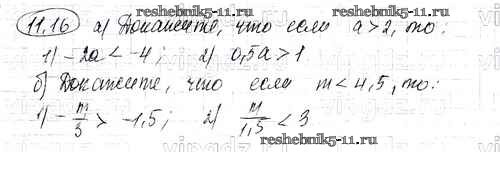 11.16 а) Докажите, что если a>2, то:
1) -2a < -4; 2) 0,5a>1
б) Докажите, что если m<4,5, то:
1) -m/3 > -1,5; 2) m/1,5 < 3
reshebnik5-11.ru
reshebnik5-11.ru